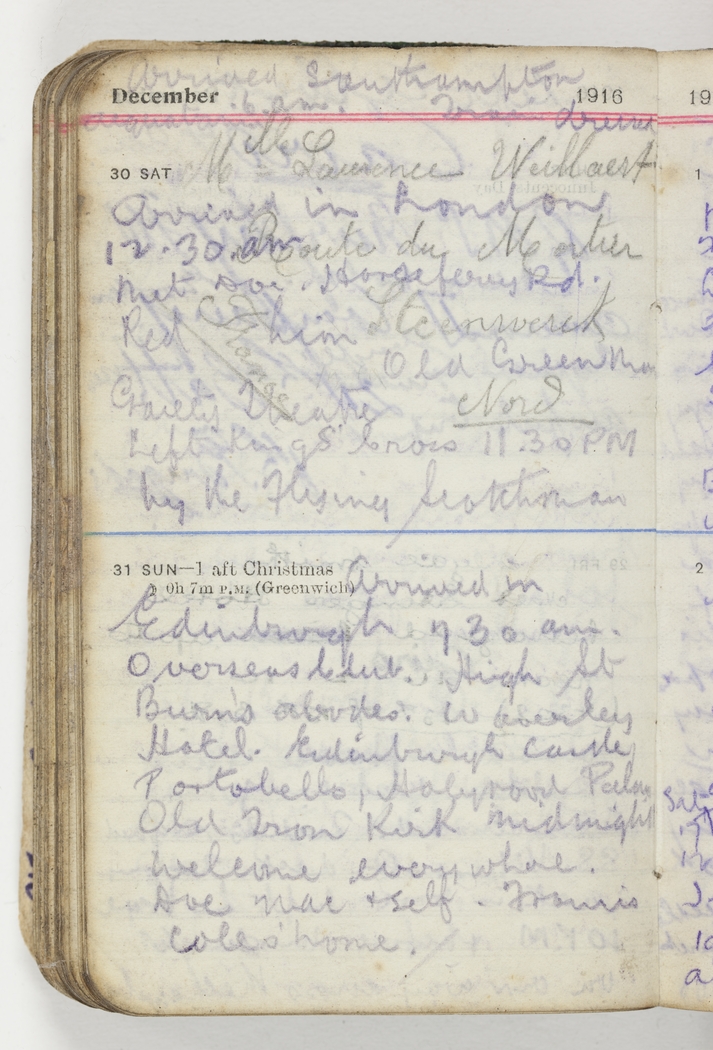 Arrived Southampton
December 1916
6 am. dressed
30 SAT Mlle Laurence
Arrived in London
12.30. am Route du Mortier
Met Doc. Horseferry Rd.
Red him Steenwerck
Old Green
Gaiety Theatre Nord
Left Kings Cross 11.30 PM
by the Flying Scotchman
31 SUN—1 aft Christmas
0h 7m P.M. (Greenwich) Arrived in
Edinburgh 7 30 am.
Overseas Club. High St
Burns abodes. Waverley
Hotel. Edinburgh Castle
Portobello, Holyrood Palace
Old Tron Kirk midnight
welcome everywhere.
Doc Mac + self. Francis
Coles' home.
19
1
2